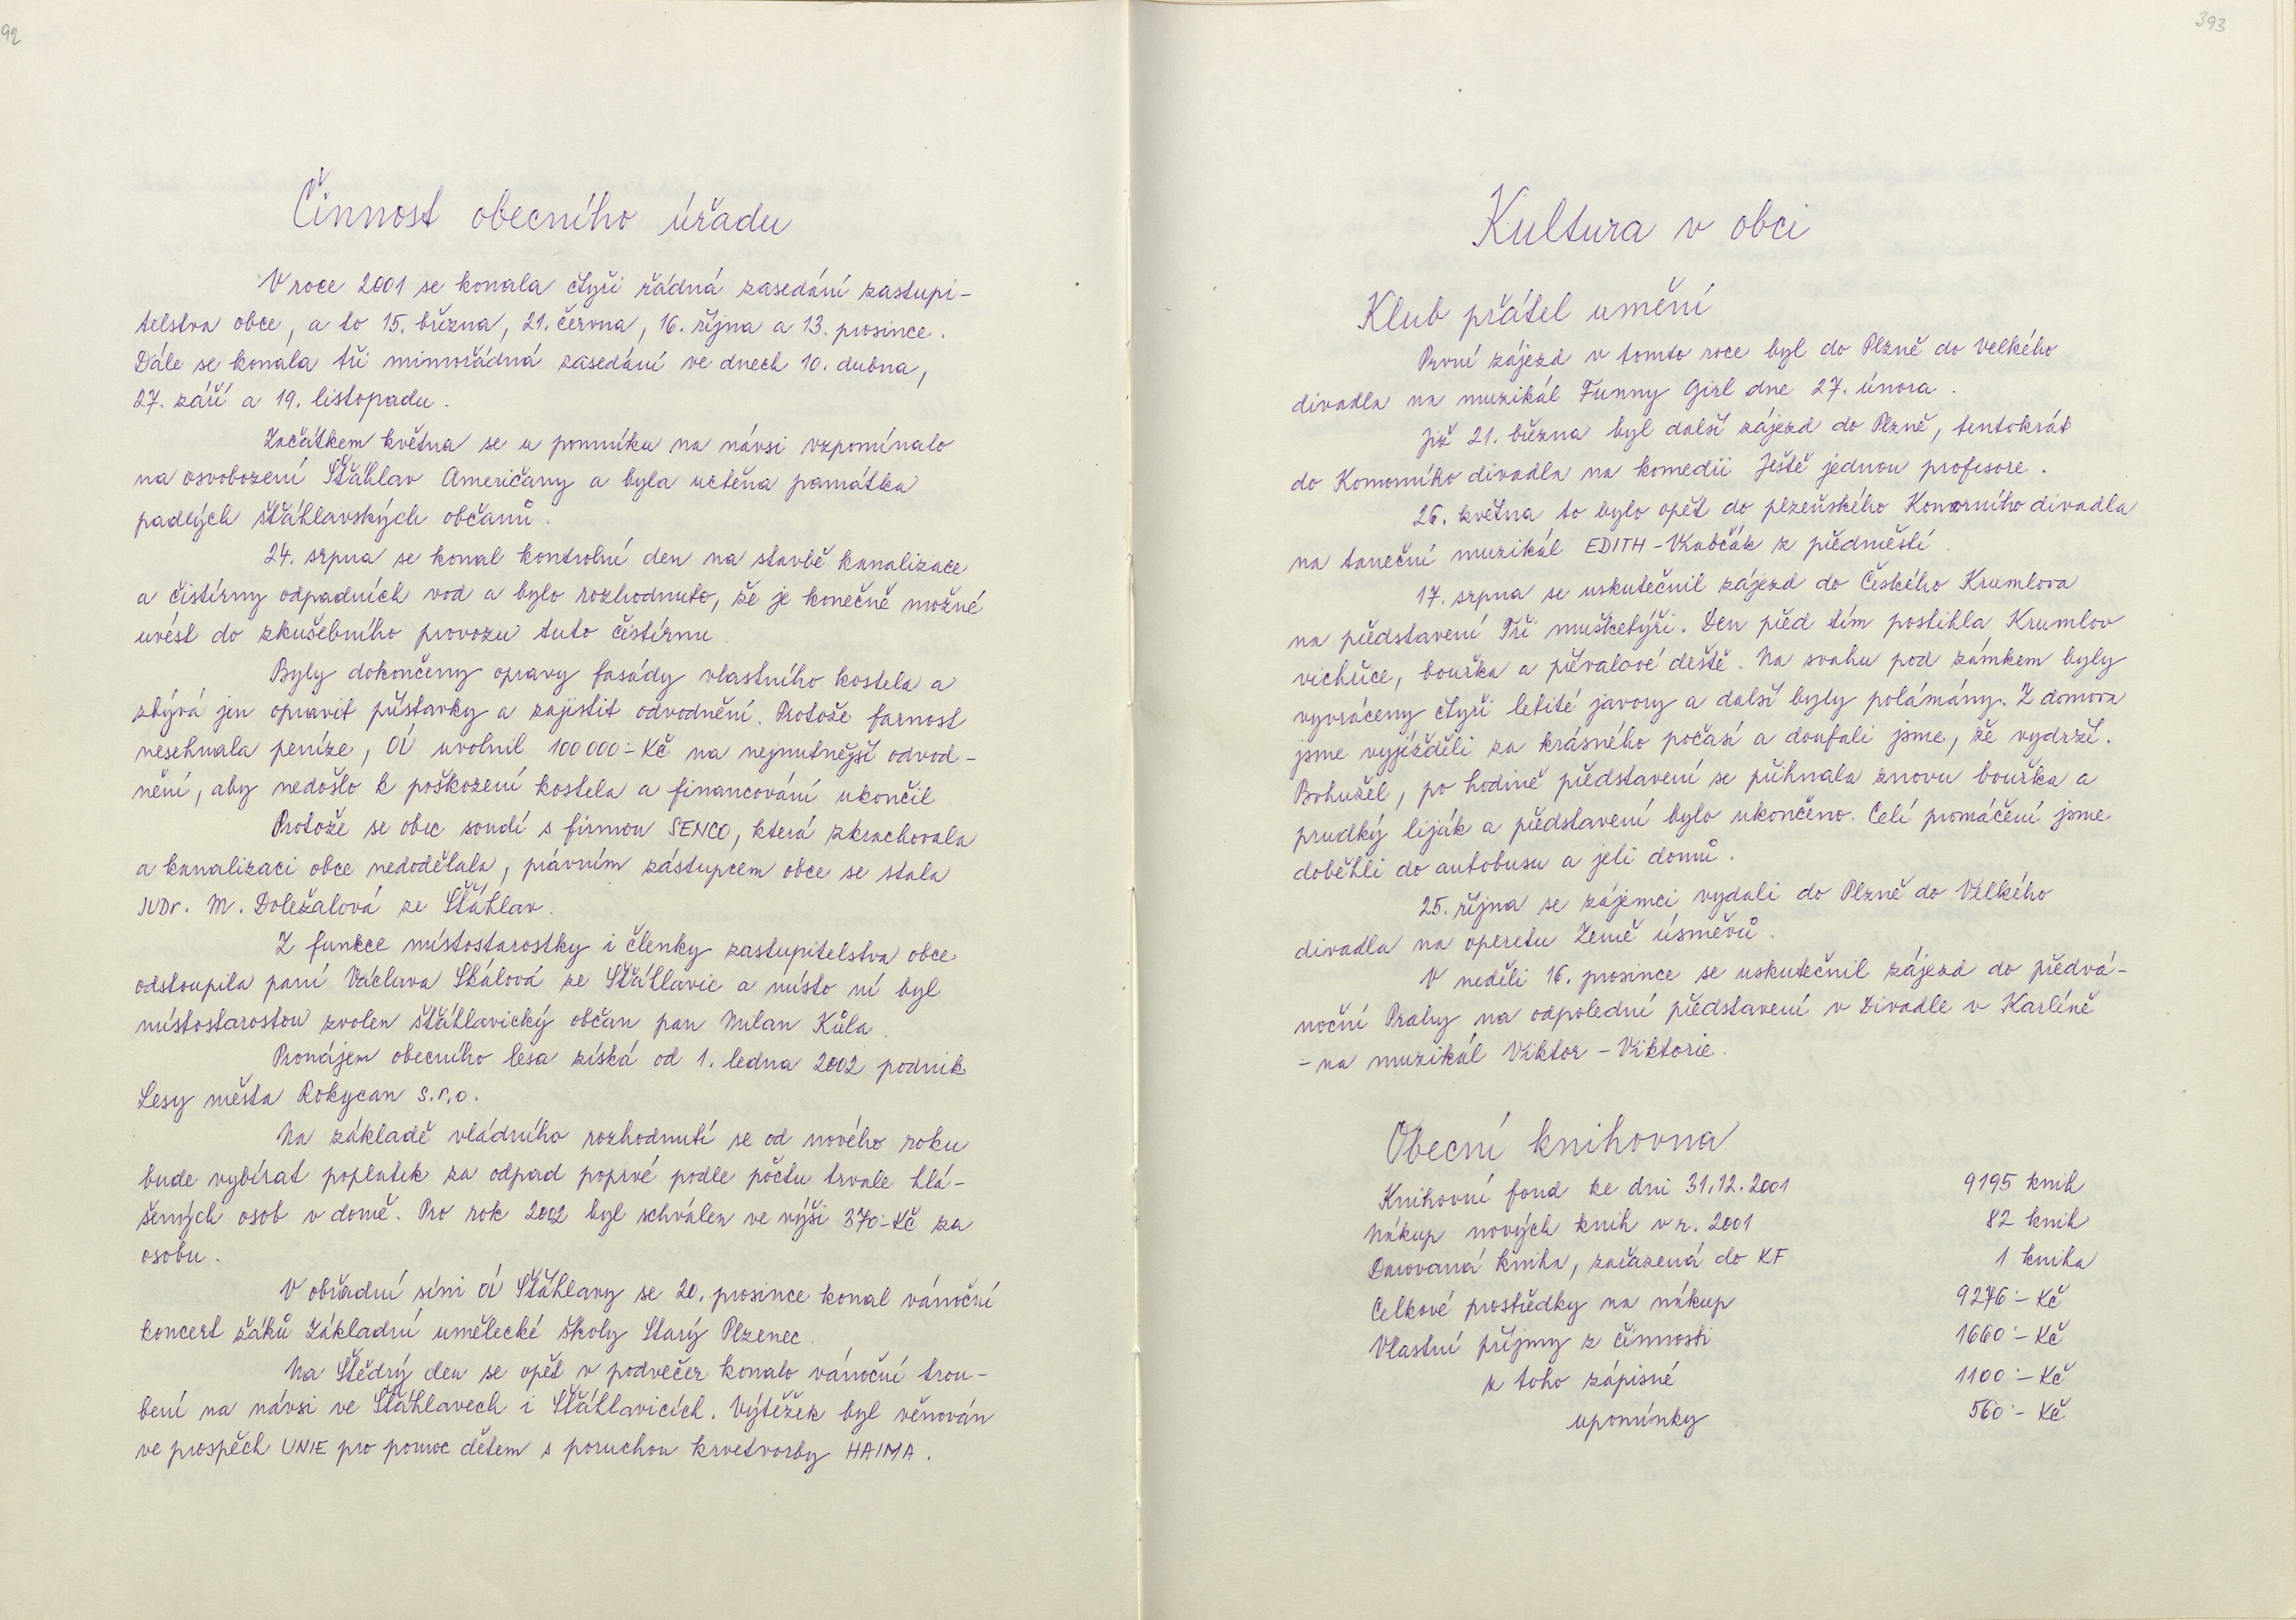 92
Činnost obecního úřadu
V roce 2001 se konala čtyři řádná zasedání zastupi-
telstva obce, a to 15. března, 21. června, 16. října a 13. prosince.
Dále se konala tři mimořádná zasedání ve dnech 10. dubna,
27. září a 19. listopadu.
Začátkem května se u pomníku na návsi vzpomínalo
na osvobození Šťáhlav Američany a byla uctěna památka
padlých šťáhlavských občanů.
24. srpna se konal kontrolní den na stavbě kanalizace
a čistírny odpadních vod a bylo rozhodnuto, že je konečně možné
uvést do zkušebního provozu tuto čistírnu.
Byly dokončeny opravy fasády vlastního kostela a
zbývá jen opravit přístavky a zajistit odvodnění. Protože farnost
nesehnala peníze, OÚ uvolnil 100 000.- Kč na nejnutnější odvod-
nění, aby nedošlo k poškození kostela a financování ukončil.
Protože se obec soudí s firmou SENCO, která zkrachovala
a kanalizaci obce nedodělala, právním zástupcem obce se stala
JUDr. M. Doležalová ze Šťáhlav.
Z funkce místostarostky i členky zastupitelstva obce
odstoupila paní Václava Skálová ze Šťáhlavic a místo ní byl
místostarostou zvolen šťáhlavický občan pan Milan Kůla.
Pronájem obecního lesa získá od 1. ledna 2002 podnik
Lesy města Rokycan s.r.o.
Na základě vládního rozhodnutí se od nového roku
bude vybírat poplatek za odpad poprvé podle počtu trvale hlá-
šených osob v domě. Pro rok 2002 byl schválen ve výši 370.- Kč za
osobu.
V obřadní síni OÚ Šťáhlavy se 20. prosince konal vánoční
koncert žáků Základní umělecké školy Starý Plzenec.
Na Štědrý den se opět v podvečer konalo vánoční trou-
bení na návsi ve Šťáhlavech i Šťáhlavicích. Výtěžek byl věnován
ve prospěch UNIE pro pomoc dětem s poruchou krvetvorby HAIMA.
393
Kultura v obci
Klub přátel umění
První zájezd v tomto roce byl do Plzně do Velkého
divadla na muzikál Funny Girl dne 27. února.
Již 21. března byl další zájezd do Plzně, tentokrát
do Komorního divadla na komedii Ještě jednou profesore.
26. května to bylo opět do plzeňského Komorního divadla
na taneční muzikál EDITH - Vrabčák z předměstí.
17. srpna se uskutečnil zájezd do Českého Krumlova
na představení Tři mušketýři. Den před tím postihla Krumlov
vichřice, bouřka a přívalové deště. Na svahu pod zámkem byly
vyvráceny čtyři letité javory a další byly polámány. Z domova
jsme vyjížděli za krásného počasí a doufali jsme, že vydrží.
Bohužel, po hodině představení se přihnala znovu bouřka a
prudký liják a představení bylo ukončeno. Celí promáčení jsme
doběhli do autobusu a jeli domů.
25. října se zájemci vydali do Plzně do Velkého
divadla na operetu Země úsměvů.
V neděli 16. prosince se uskutečnil zájezd do předvá-
noční Prahy na odpolední představení v Divadle v Karlíně
- na muzikál Viktor - Viktorie.
Obecní knihovna
Knihovní fond ke dni 31.12.2001 9195 knih
Nákup nových knih v r. 2001 82 knih
Darovaná kniha, zařazená do KF 1 kniha
Celkové prostředky na nákup 9276.- Kč
Vlastní příjmy z činnosti 1660.- Kč
z toho zápisné 1100.- Kč
upomínky 560.- Kč